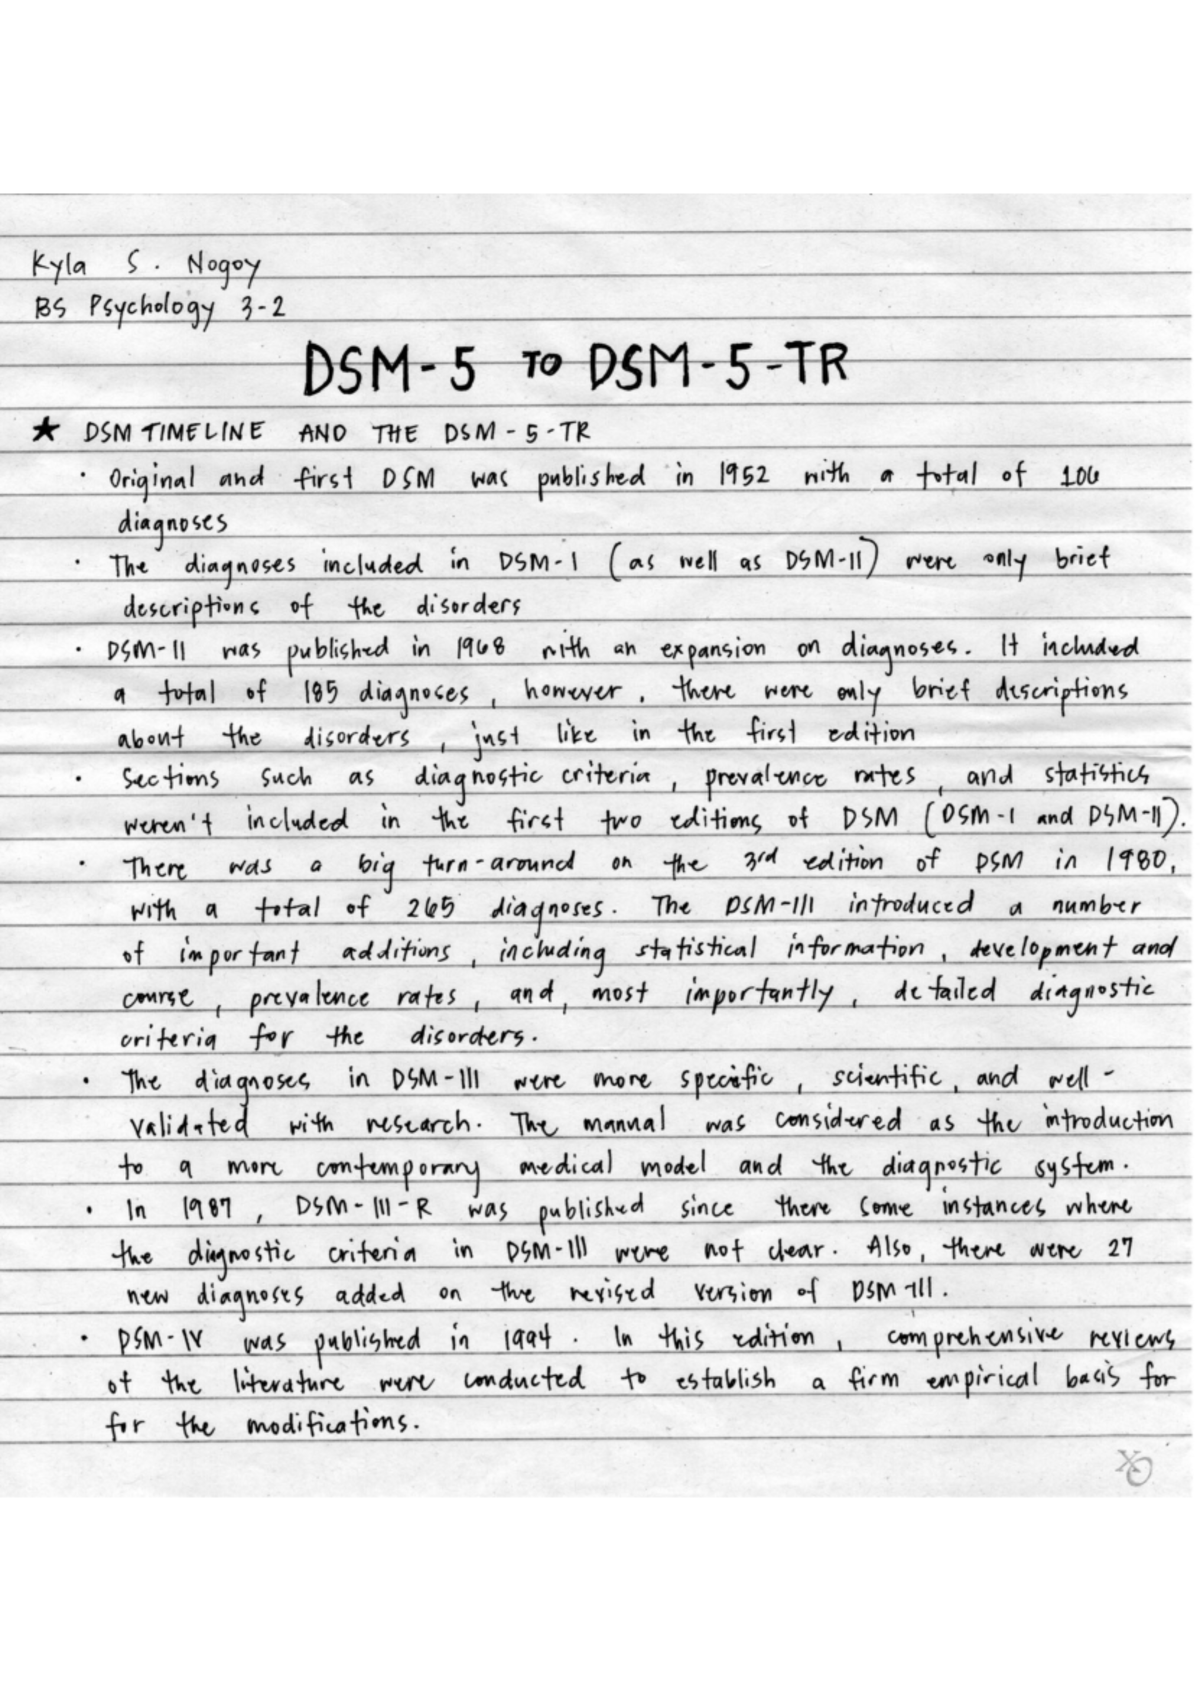 Kyla S. Nogoy
BS Psychology 3-2
DSM-5 TO DSM-5-TR
★ DSM TIMELINE AND THE DSM-5-TR
· Original and first DSM was published in 1952 with a total of 106
diagnoses
· The diagnoses included in DSM-I (as well as DSM-II) were only brief
descriptions of the disorders
· DSM-II was published in 1968 with an expansion on diagnoses. It included
a total of 185 diagnoses, however, there were only brief descriptions
about the disorders, just like in the first edition
· Sections such as diagnostic criteria, prevalence rates, and statistics
weren't included in the first two editions of DSM (DSM-I and DSM-II).
· There was a big turn-around on the 3rd edition of DSM in 1980,
with a total of 265 diagnoses. The DSM-III introduced a number
of important additions, including statistical information, development and
course, prevalence rates, and, most importantly, detailed diagnostic
criteria for the disorders.
· The diagnoses in DSM-III were more specific, scientific, and well-
validated with research. The manual was considered as the introduction
to a more contemporary medical model and the diagnostic system.
· In 1987, DSM-III-R was published since there some instances where
the diagnostic criteria in DSM-III were not clear. Also, there were 27
new diagnoses added on the revised version of DSM-III.
· DSM-IV was published in 1994. In this edition, comprehensive reviews
of the literature were conducted to establish a firm empirical basis for
for the modifications.
XO